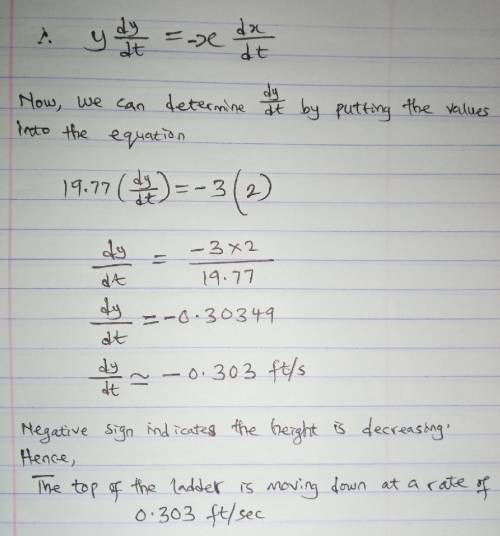 ∴ y dy/dt = -x dx/dt
Now, we can determine dy/dt by putting the values
into the equation
19.77 (dy/dt) = -3 (2)
dy/dt = -3×2/19.77
dy/dt = -0.30349
dy/dt ≃ -0.303 ft/s
Negative sign indicates the height is decreasing.
Hence,
The top of the ladder is moving down at a rate of
0.303 ft/sec